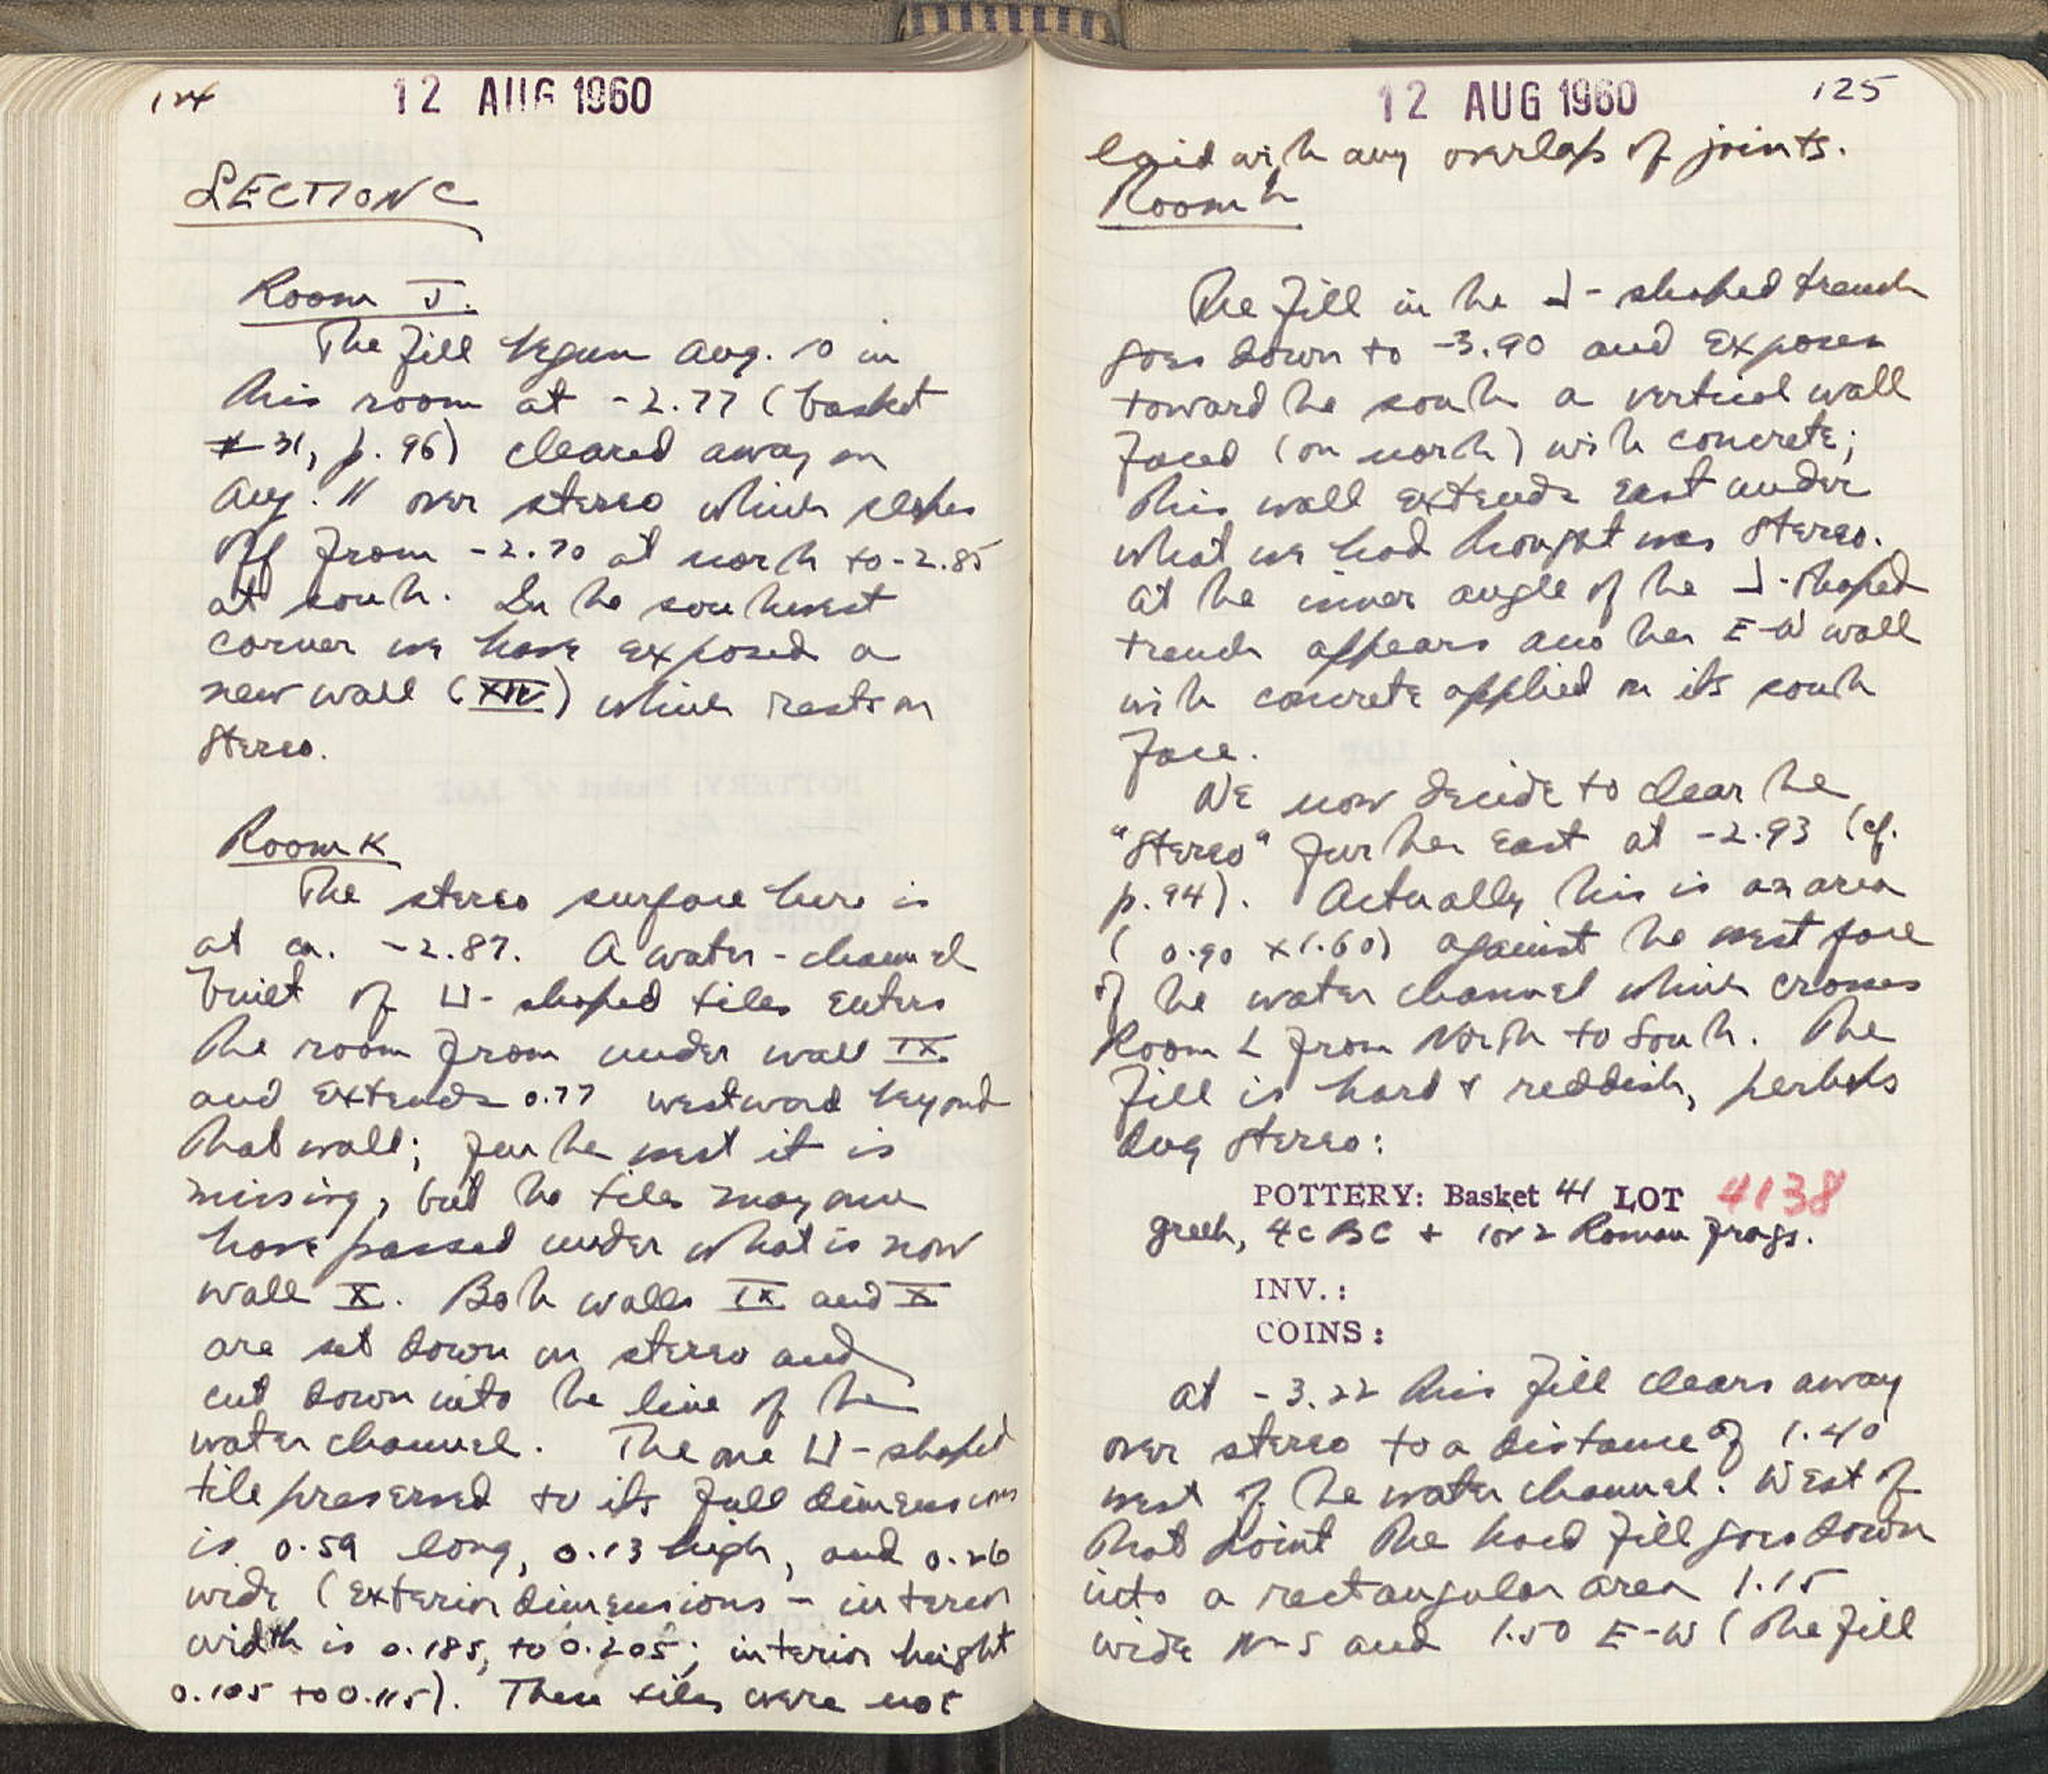 124
12 AUG 1960
SECTION C
Room J.
The fill begun Aug. 10 in
this room at -2.77 (basket
#31, p. 96) cleared away on
Aug. 11 over stereo which slopes
off from -2.70 at north to -2.85
at south. In the southwest
corner we have exposed a
new wall (XIV) which rests on
stereo.
Room K
The stereo surface here is
at ca. -2.87. A water-channel
built of ⊔-shaped tiles enters
the room from under wall IX
and extends 0.77 westward beyond
that wall; further west it is
missing, but the tiles may once
have passed under what is now
wall X. Both walls IX and X
are set down on stereo and
cut down into the line of the
water channel. The one ⊔-shaped
tile preserved to its full dimensions
is 0.59 long, 0.13 high, and 0.26
wide (exterior dimensions - interior
width is 0.185, to 0.205; interior height
0.105 to 0.115). These tiles were not
12 AUG 1960
125
laid with any overlap of joints.
Room L
The fill in the ┘-shaped trench
goes down to -3.90 and exposes
toward the south a vertical wall
faced (on north) with concrete;
this wall extends east under
what we had thought was stereo.
At the inner angle of the ┘-shaped
trench appears another E-W wall
with concrete applied on its south
face.
We now decide to clear the
"stereo" further east at -2.93 (cf.
p. 94). Actually this is an area
(0.90 x 1.60) against the west face
of the water channel which crosses
Room L from North to South. The
fill is hard & reddish, perhaps
dug stereo:
POTTERY: Basket 41 LOT 4138
Greek, 4c BC + 1 or 2 Roman frags.
INV.:
COINS:
At -3.22 this fill clears away
over stereo to a distance of 1.40
west of the water channel. West of
that point the hard fill goes down
into a rectangular area 1.15
wide N-S and 1.50 E-W (The fill